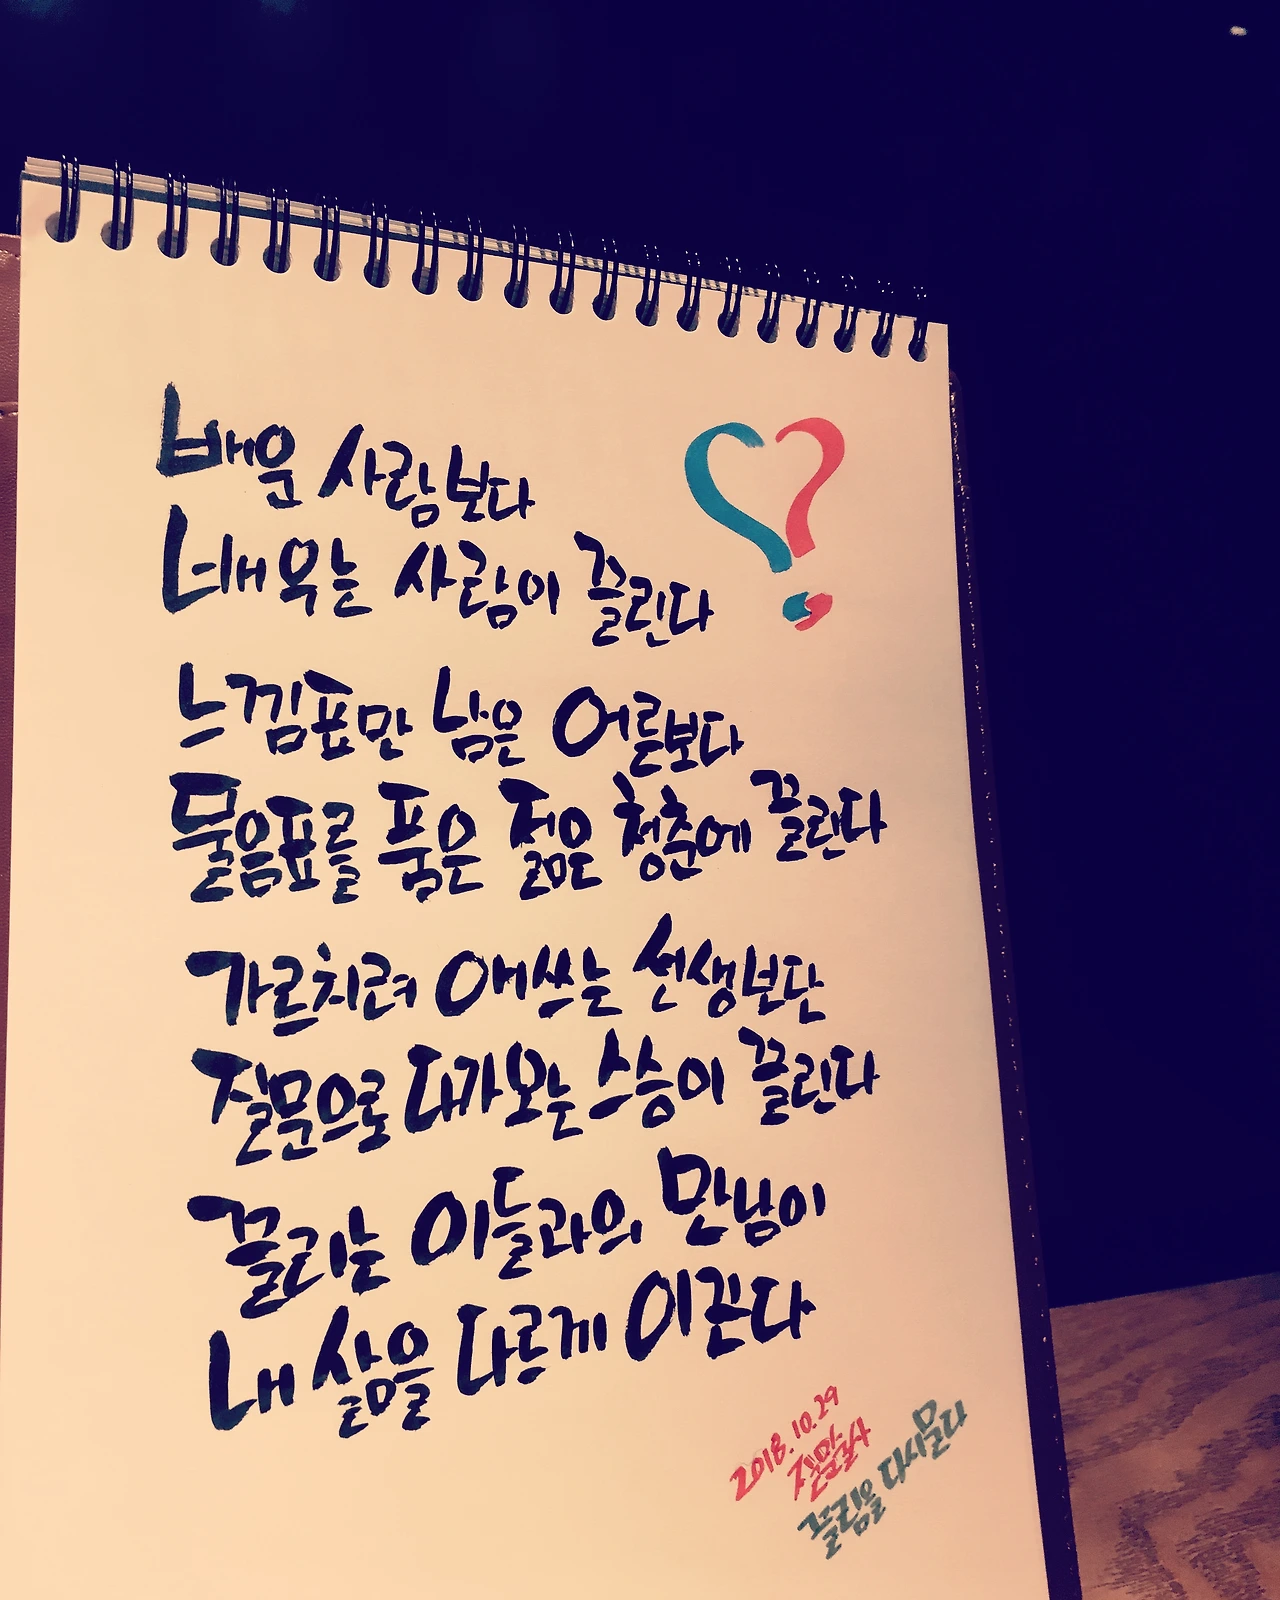 배운 사람보다
배우는 사람이 끌린다
느낌표만 남은 어른보다
물음표를 품은 젊은 청춘에 끌린다
가르치려 애쓰는 선생보단
질문으로 다가오는 스승이 끌린다
끌리는 이들과의 만남이
내 삶을 다르게 이끈다
2018.10.29
끌림을 다시 묻다